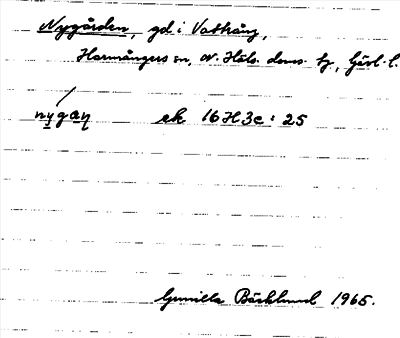 Nygården, gd i Vattrång,
Harmångers sn, N. Häls. doms. tg, Gävl. l.
nygaṇ ek 16H3c: 25
Gunilla Bäcklund 1965.